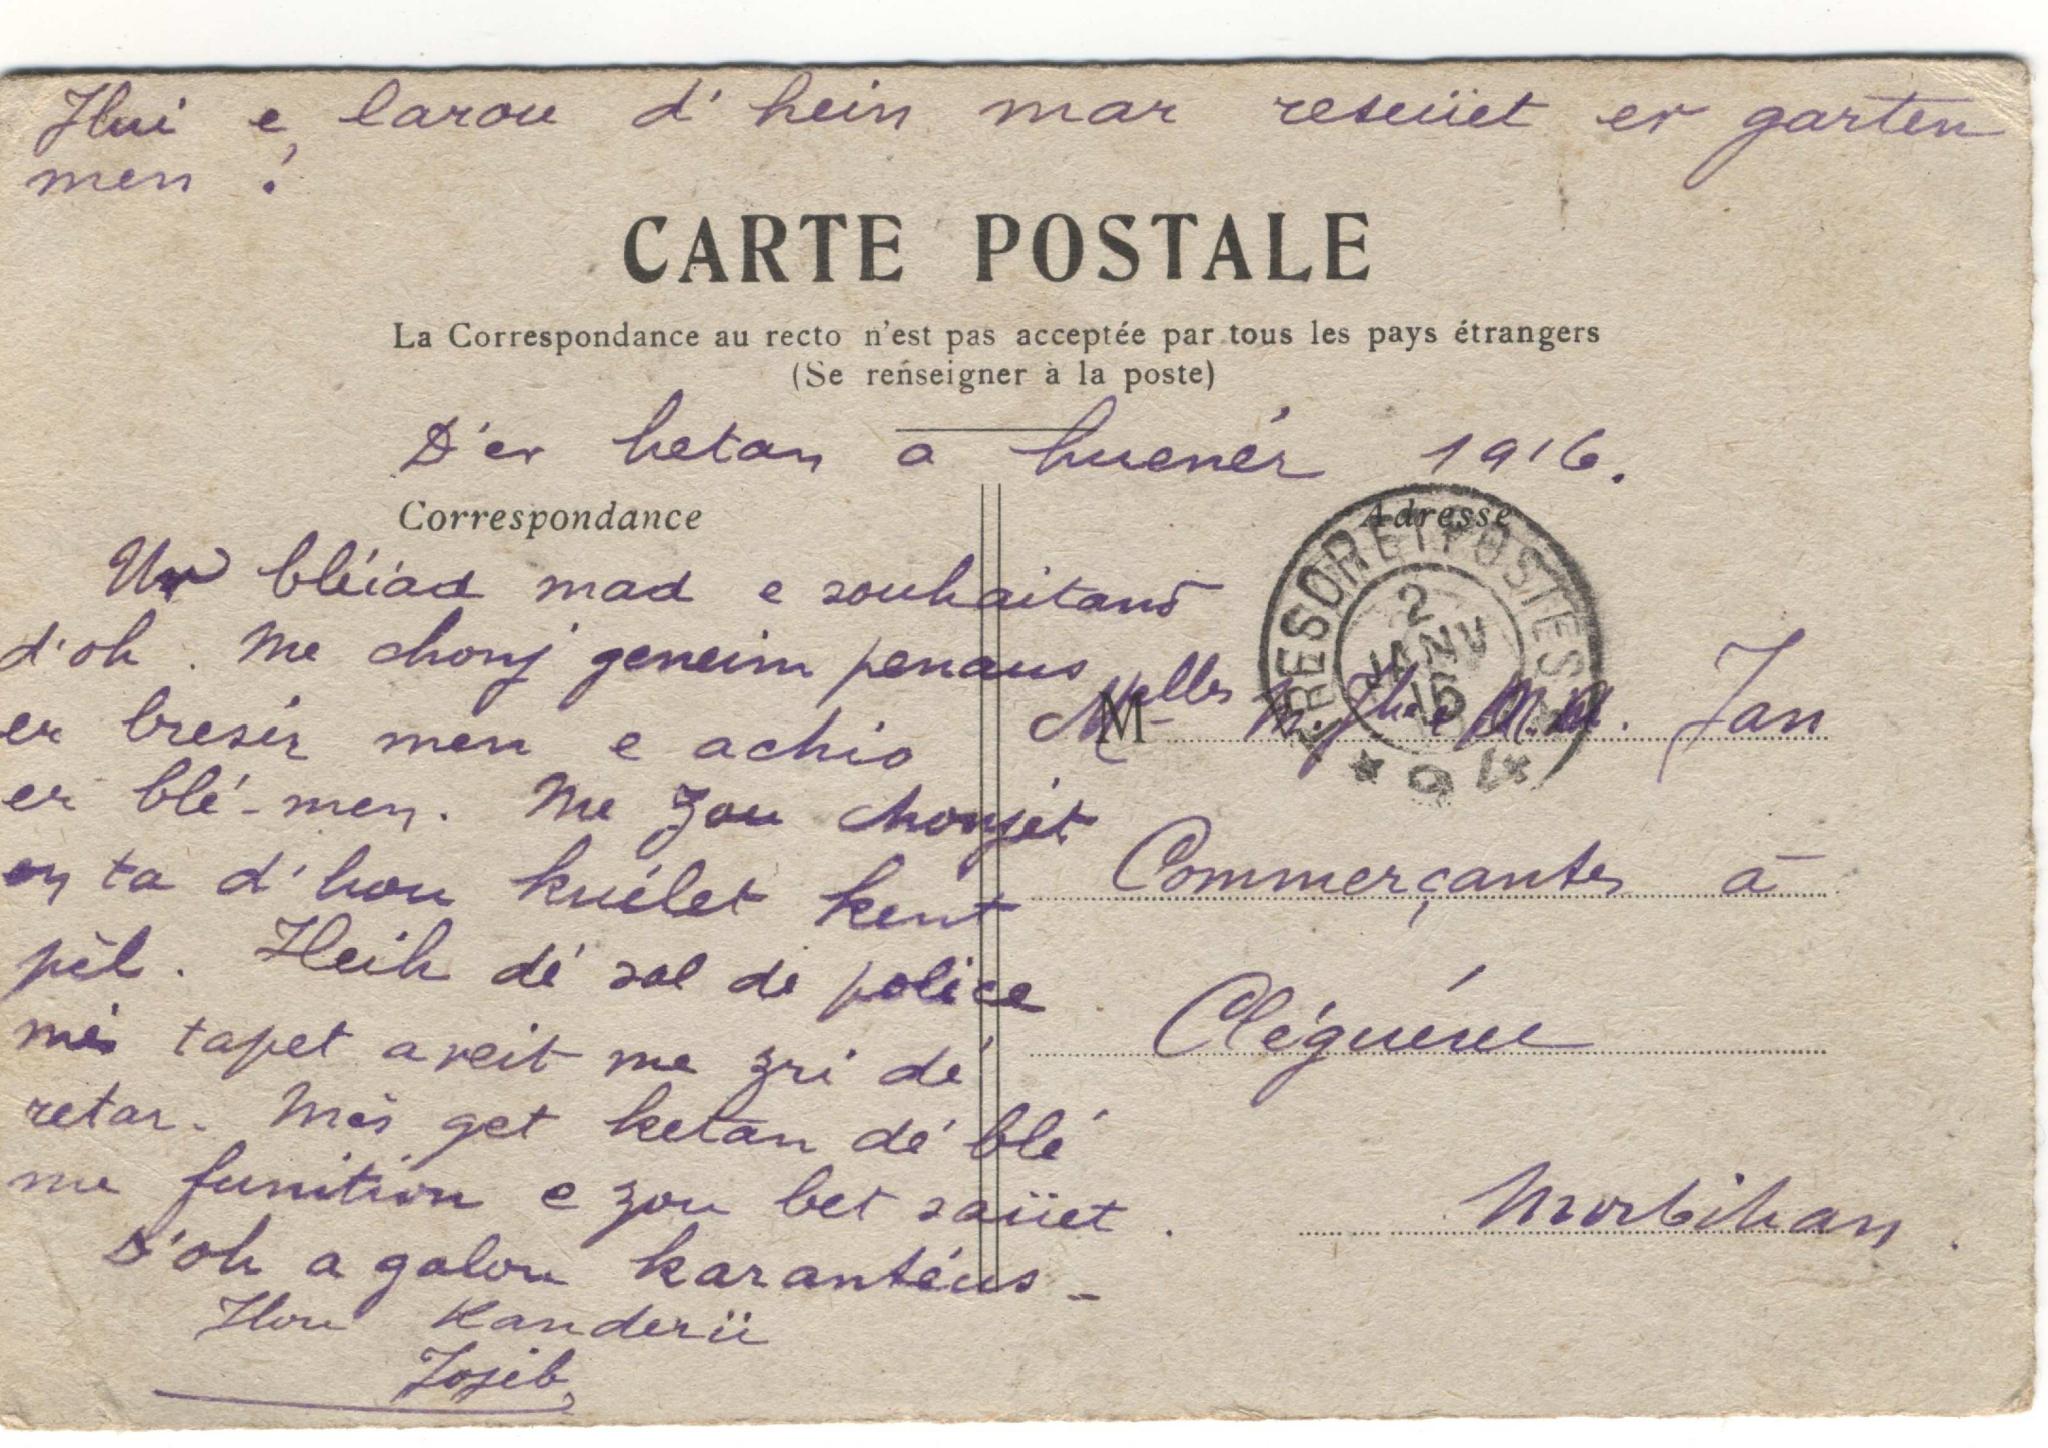 Hui e larou d'hein mar reseüet er garten
men !
CARTE POSTALE
La Correspondance au recto n'est pas acceptée par tous les pays étrangers
(Se renseigner à la poste)
D'er hetan a huenér 1916.
Correspondance
Adresse
Ur bléiad mad e souhaitand
d'oh. Me chonj geneim penaus
er bresér men e achio
er blé-men. Me zou chonjet
on ta d'hou kuélet kent
pèl. Heih dé sal de police
més tapet aveit me zri dé
retar. Més get ketan dé blé
me funition e zou bet saüet.
D'oh a galon karantéus -
Hou Kanderü
Jojeb
TRESOR ET POSTES
2
JANV
16
* 94 *
Melles M. Jhe e M. A. Jan
Commerçantes à
Cléguérec
Morbihan.